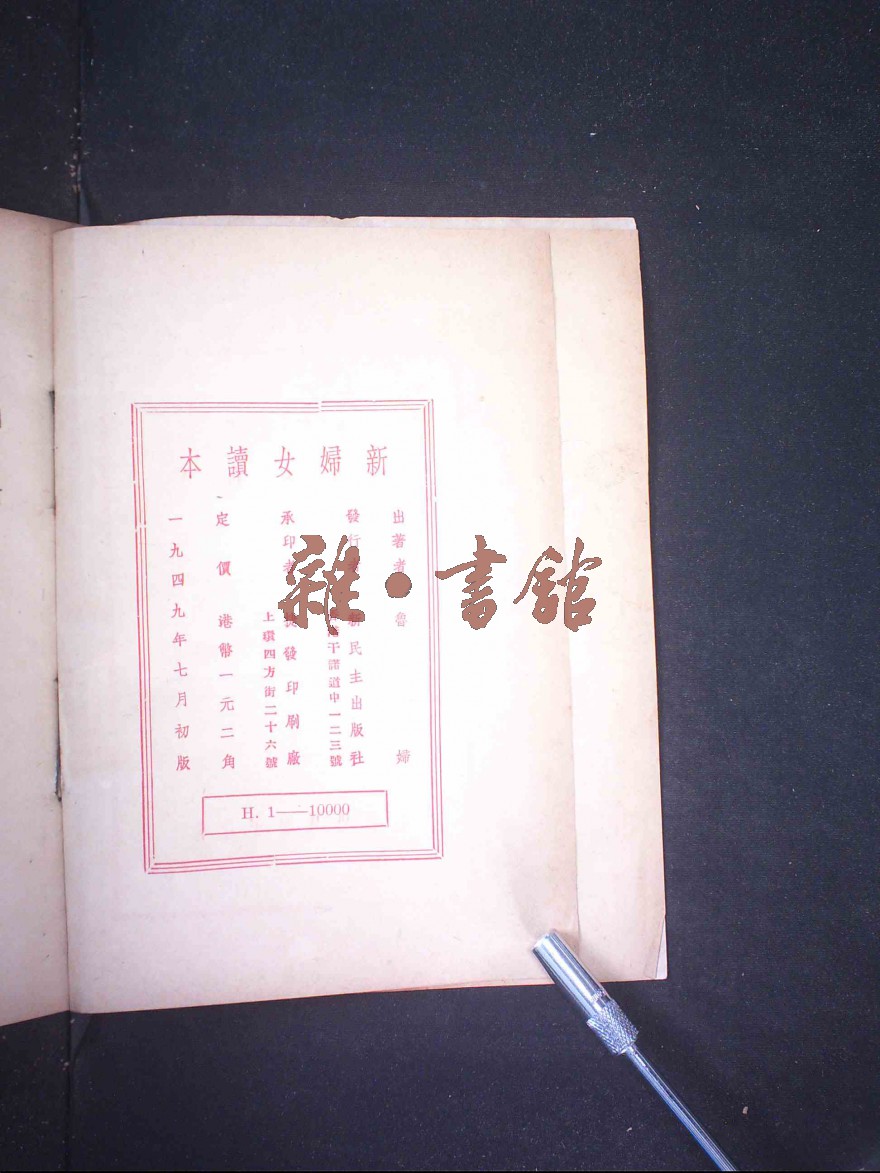 新婦女讀本
出著者 魯 婦
發行者 新民主出版社
港干諾道中一二三號
承印者 發印刷廠
上環四方街二十六號
定價 港幣一元二角
一九四九年七月初版
H. 1——10000
雜·書館